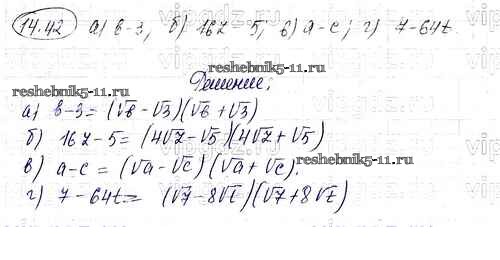 14.42 а) b-3, б) 16z-5; в) a-c; г) 7-64t.
reshebnik5-11.ru
Решение:
reshebnik5-11.ru
а) b-3=(√b-√3)(√b+√3)
б) 16z-5=(4√z-√5)(4√z+√5)
в) a-c=(√a-√c)(√a+√c).
reshebnik5-11.ru
г) 7-64t= (√7-8√t)(√7+8√t)